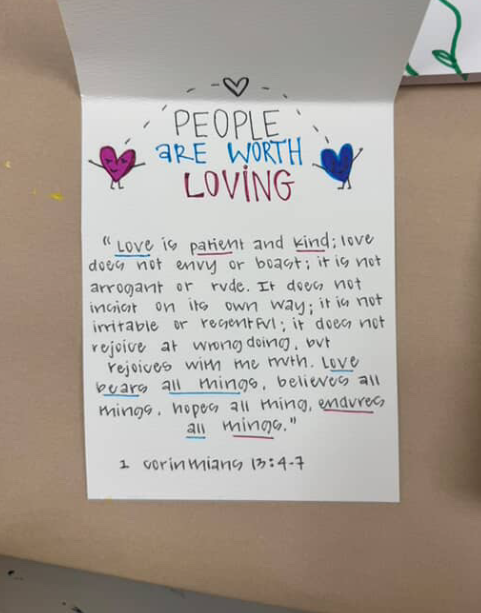 PEOPLE
ARE WORTH
LOVING
"Love is patient and kind; love
does not envy or boast; it is not
arrogant or rude. It does not
insist on its own way; it is not
irritable or resentful; it does not
rejoice at wrong doing, but
rejoices with the truth. Love
bears all things, believes all
things, hopes all thing, endures
all things."
1 corinthians 13:4-7